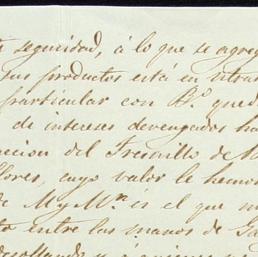 seguridad, á lo que se agreg
sus productos está en atras
particular con B.º qued
de intereses devengados ha
acion del Tresmillo de
llores, cuyo valor le hemos
de My Mr. es el que m
to entre las manos de Ga